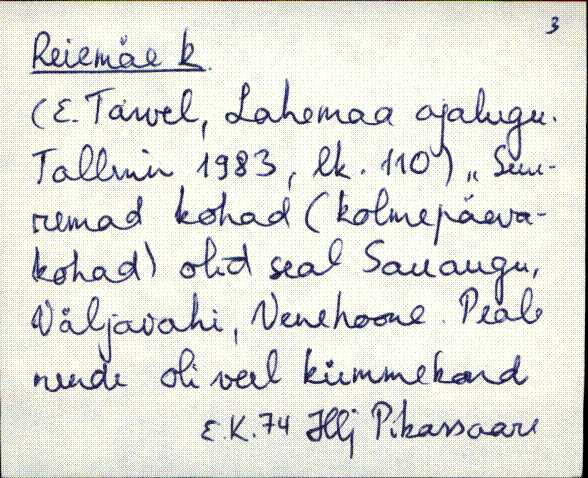 3
Reiemäe k.
(E. Tarvel, Lahemaa ajalugu.
Tallinn 1983, lk. 110) „Suu-
remad kohad (kolmepäeva-
kohad) olid seal Sauaugu,
Väljavahi, Venehoone. Peale
nende oli veel kümmekond
E.K. 74 Pikassaare